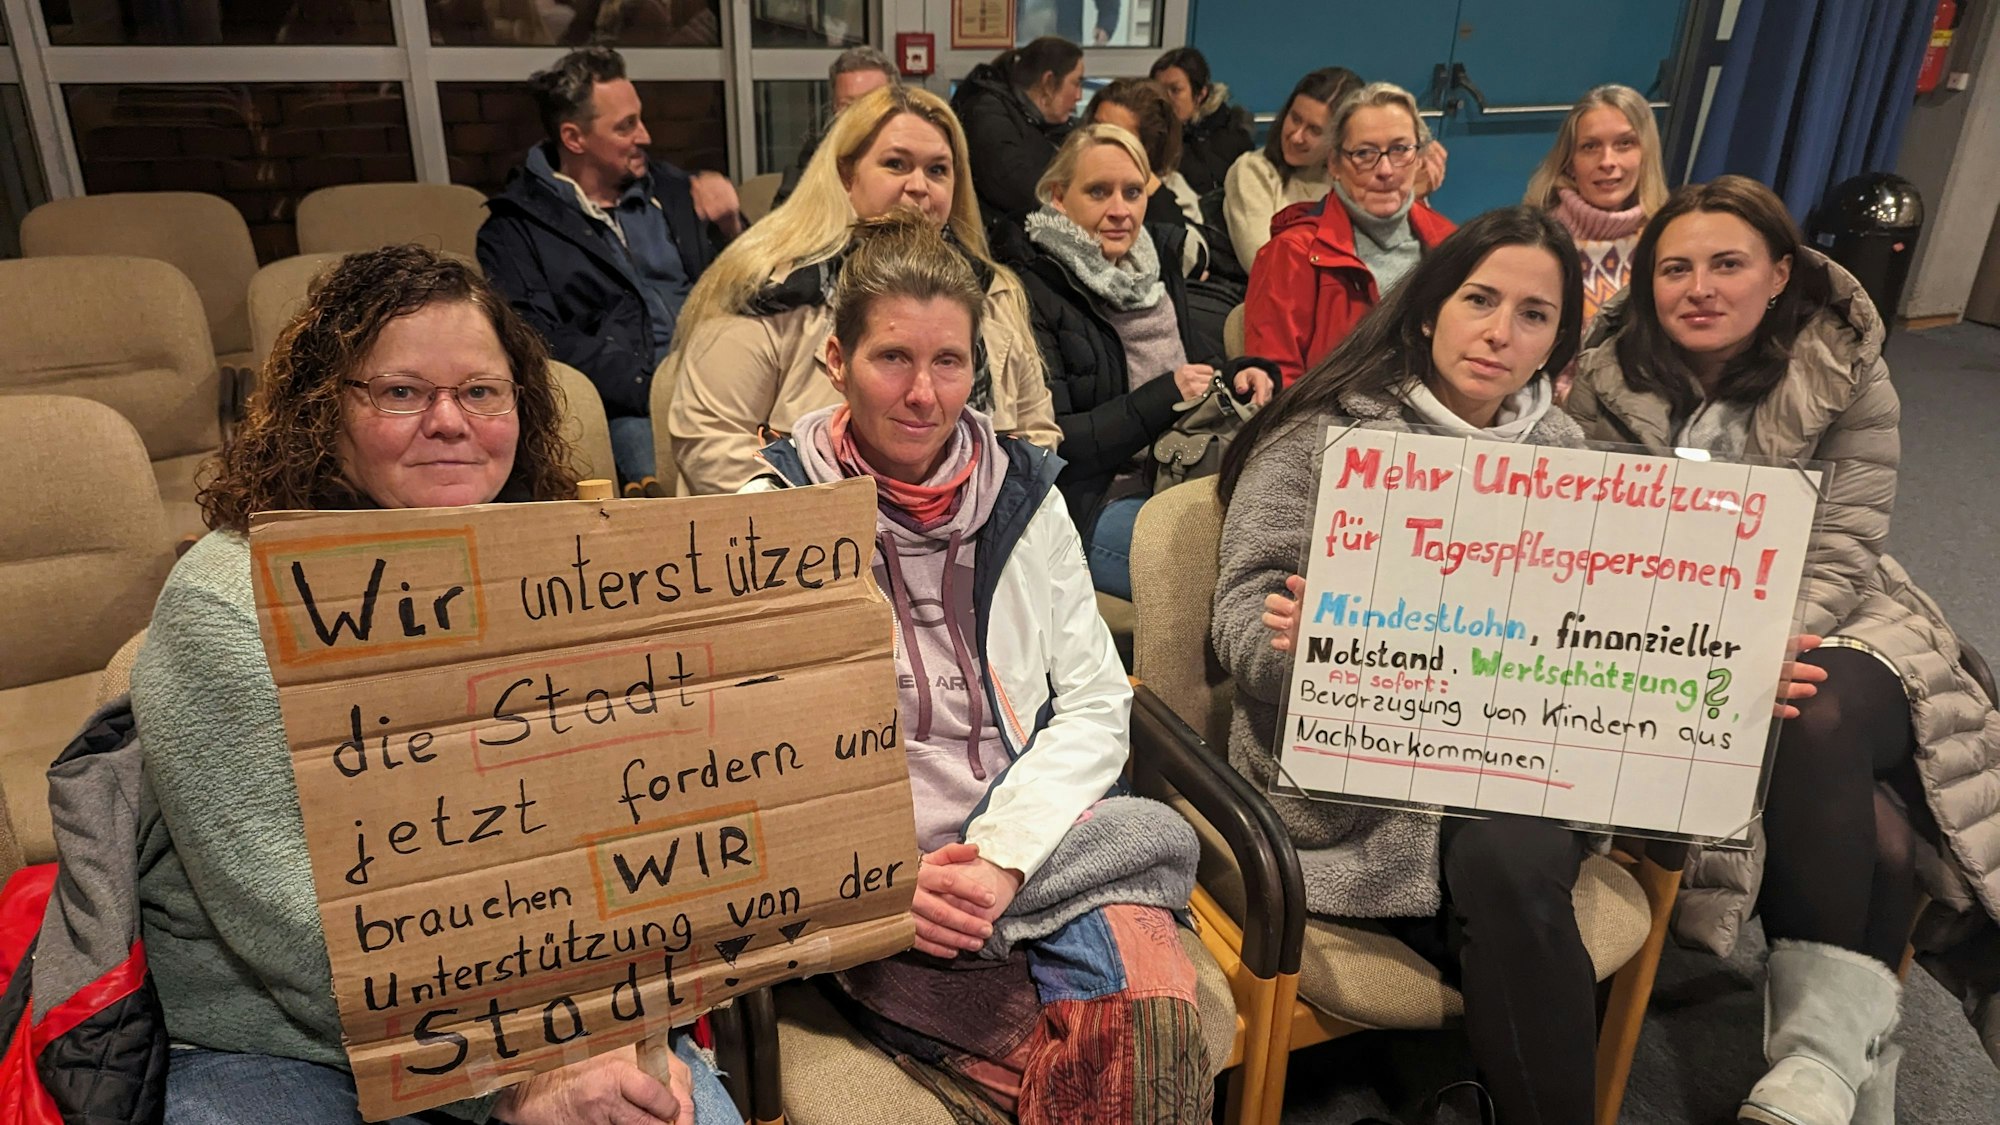 Wir unterstützen
die Stadt –
jetzt fordern und
brauchen WIR
Unterstützung von der
Stadt!!
Mehr Unterstützung
für Tagespflegepersonen!
Mindestlohn, finanzieller
Notstand. Wertschätzung?,
Ab sofort:
Bevorzugung von Kindern aus
Nachbarkommunen.